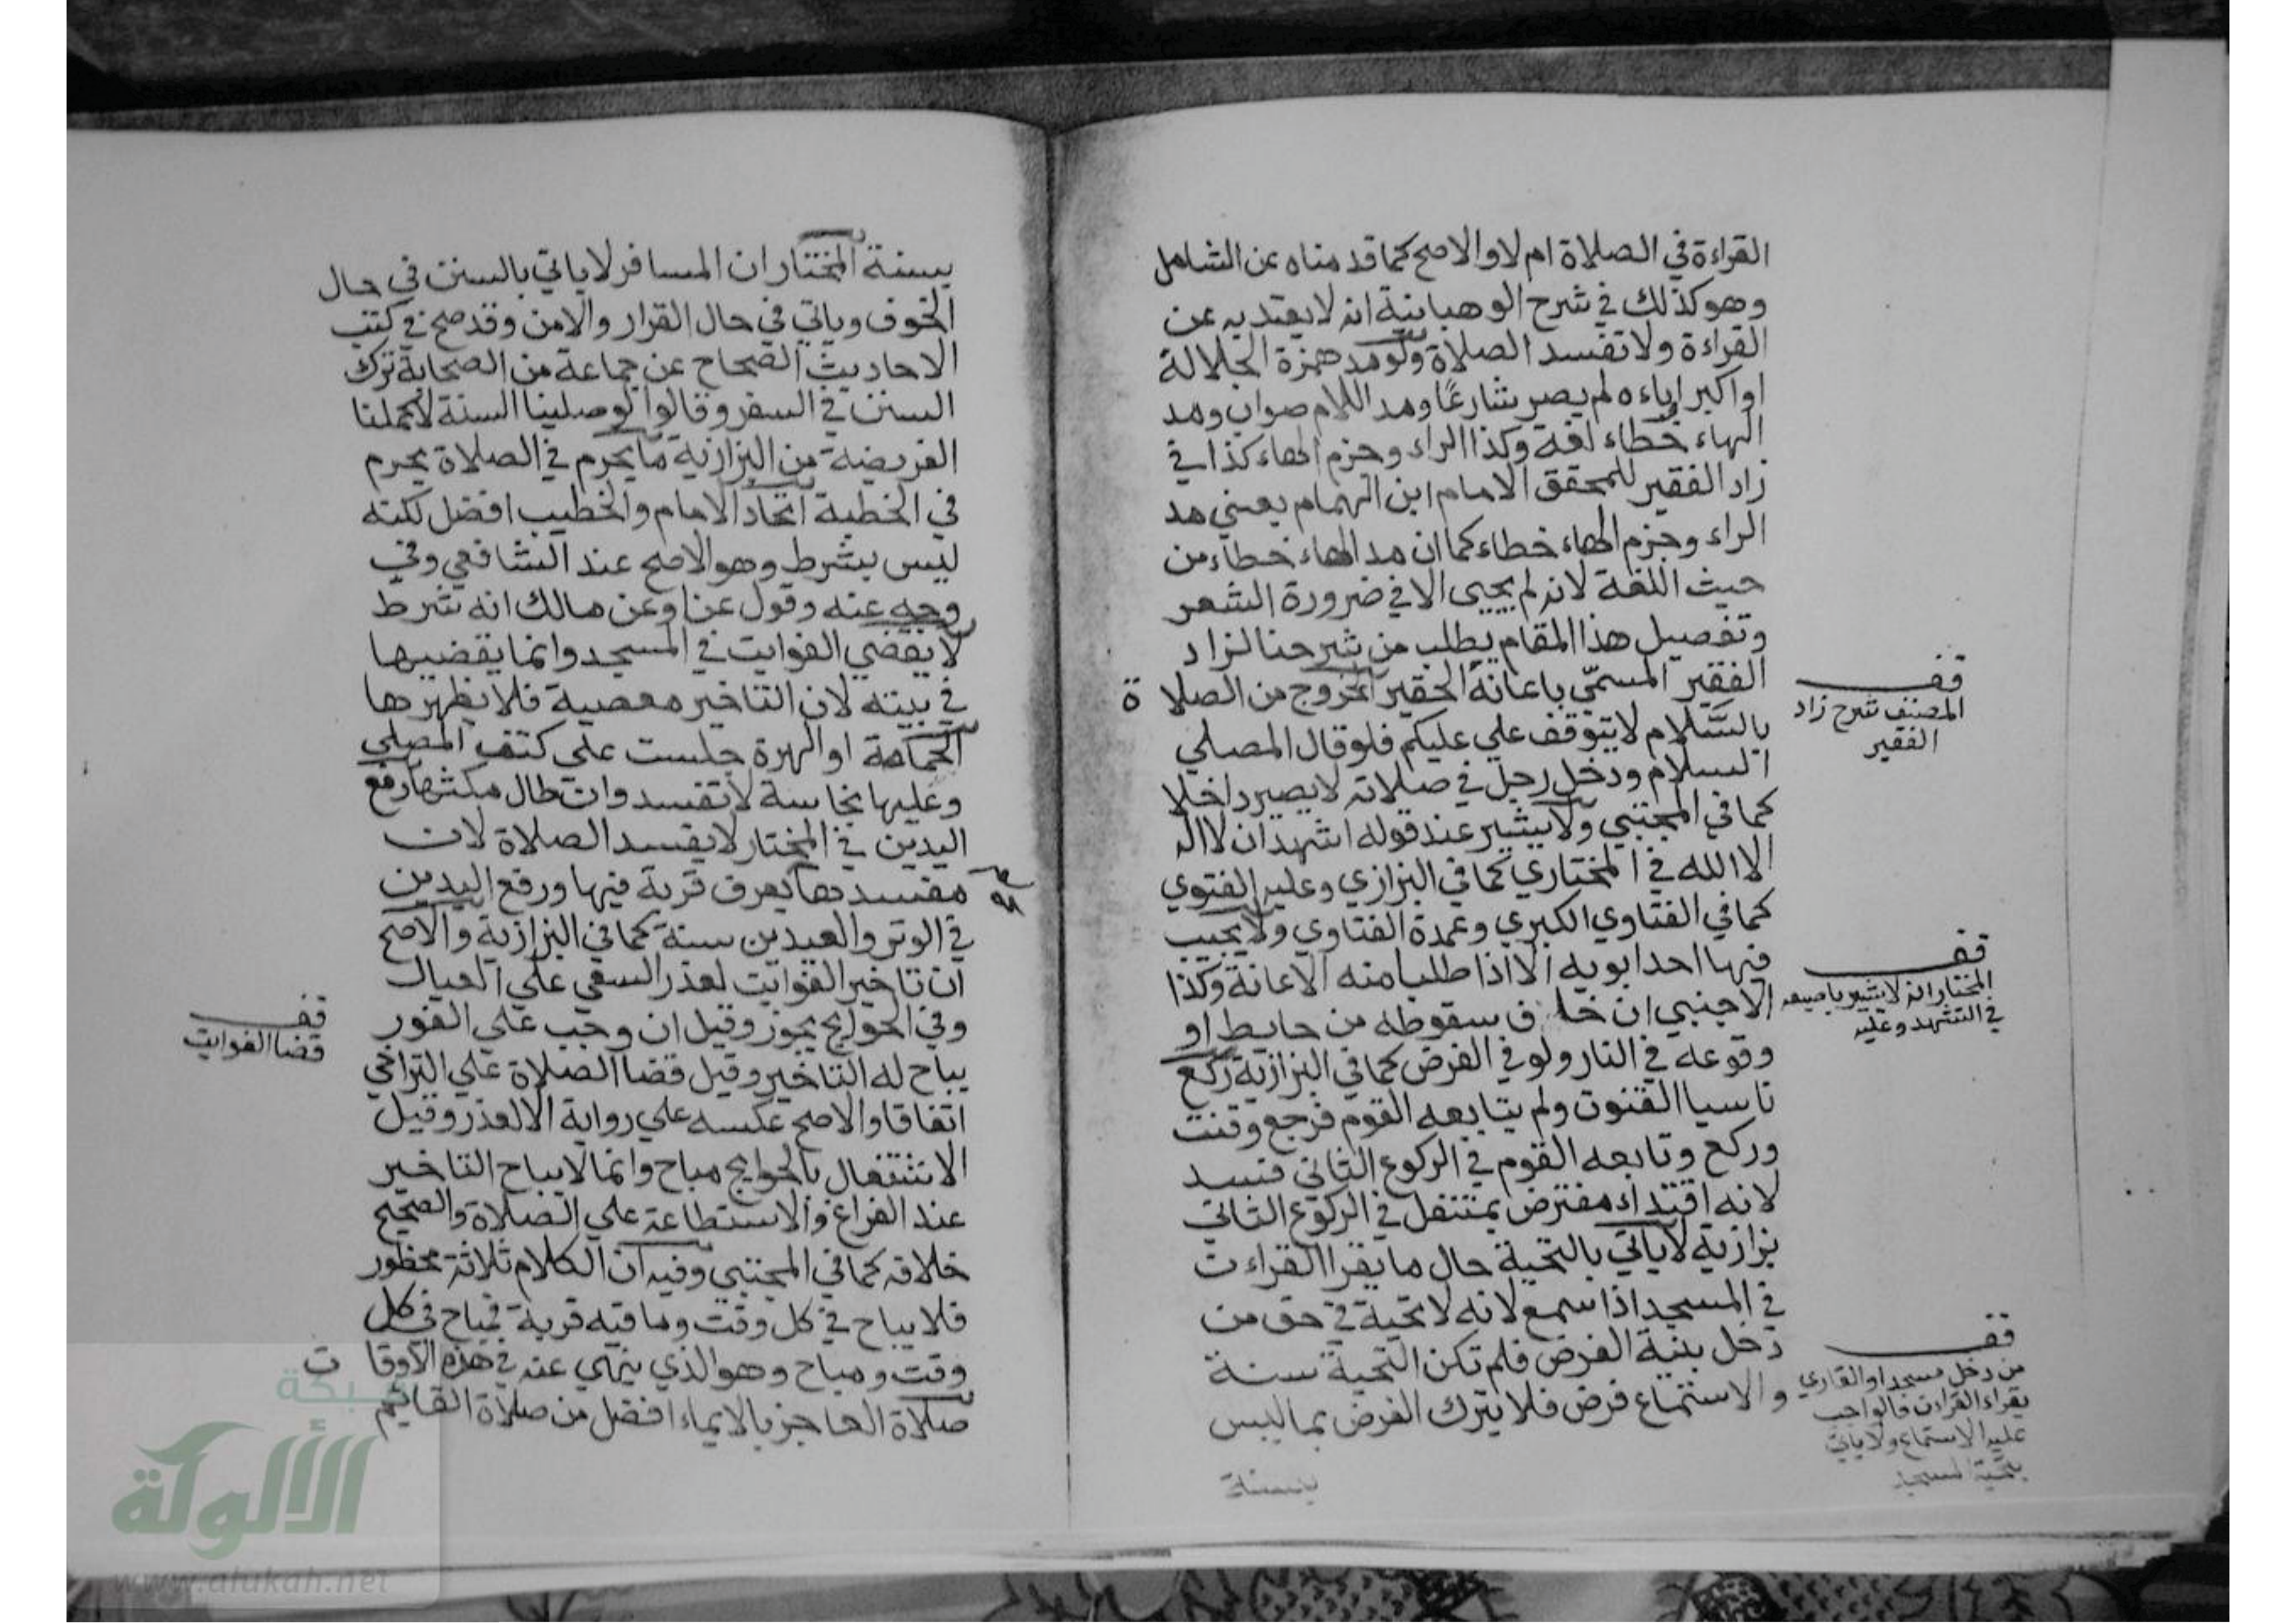 القراءة في الصلاة ام لا والاصح كما قدمناه عن الشامل
وهو كذلك في شرح الوهبانية انه لا يعتد به عن
القراءة ولا تفسد الصلاة ولو مد همزة الجلالة
او اكبر اوباءه لم يصر شارعًا ومد اللام صواب ومد
الهاء خطاء لغة وكذا الراء وجزم الهاء كذا في
زاد الفقير للمحقق الامام ابن الهمام يعني مد
الراء وجزم الهاء خطاء كما ان مد الهاء خطاء من
حيث اللغة لانه لم يجيى الا في ضرورة الشعر
وتفصيل هذا المقام يطلب من شرحنا لزاد
الفقير المسمّي باعانة الحقير الخروج من الصلاة
بالسَّلام لا يتوقف علي عليكم فلو قال المصلي
السلام ودخل رجل في صلاته لا يصير داخلا
كما في المجتبي ولا يشير عند قوله اشهد ان لا اله
الا الله في المختاري كما في البزازي وعليه الفتوي
كما في الفتاوي الكبري وعمدة الفتاوي ولا يجيب
فيها احد ابويه الا اذا طلبا منه الاعانة وكذا
الاجنبي ان خاف سقوطه من حايط او
وقوعه في النار ولو في الفرض كما في البزازية ركع
ناسيا القنوت ولم يتابعه القوم فرجع وقنت
وركع وتابعه القوم في الركوع الثاني فسد
لانه اقتداء مفترض بمتنفل في الركوع الثاني
بزازية لا ياتي بالتحية حال ما يقرا القراءت
في المسجد اذا سمع لانه لا تحية في حق من
دخل بنية الفرض فلم تكن التحية سنة
والاستماع فرض فلا يترك الفرض بما ليس
بسنة
قف
المصنف شرح زاد
الفقير
قف
المختار انه لا يشير باصبعه
في التشهد وعليه
قف
من دخل مسجدا والقاري
يقراء القران فالواجب
عليه الاستماع ولا ياتي
بتحية المسجد
بسنة المختار ان المسافر لا ياتي بالسنن في حال
الخوف وياتي في حال القرار والامن وقد صح في كتب
الاحاديث الصحاح عن جماعة من الصحابة ترك
السنن في السفر وقالوا لو صلينا السنة لاكملنا
الفريضة من البزازية ما يحرم في الصلاة يحرم
في الخطبة اتحاد الامام والخطيب افضل لكنه
ليس بشرط وهو الاصح عند الشافعي وفي
وجه عنه وقول عنا وعن مالك انه شرط
لا يقضي الفوايت في المسجد وانما يقضيها
في بيته لان التاخير معصية فلا يظهرها
الحمامة او الهرة جلست على كتف المصلي
وعليها نجاسة لا تفسد وان طال مكثها رفع
اليدين في المختار لا يفسد الصلاة لان
مفسدها يعرف قربة فيها ورفع اليدين
في الوتر والعيدين سنة كما في البزازية والاصح
ان تاخير الفوايت لعذر السعي علي العيال
وفي الحوايج يجوز وقيل ان وجب علي الفور
يباح له التاخير وقيل قضا الصلاة علي التراخي
اتفاقا والاصح عكسه علي رواية الا لعذر وقيل
الاشتغال بالحوايج مباح وانما لا يباح التاخير
عند الفراغ والاستطاعة علي الصلاة والصحيح
خلافه كما في المجتبي وفيه ان الكلام ثلاثة محظور
فلا يباح في كل وقت وما فيه قربة فيباح في كل
وقت ومباح وهو الذي ينهي عنه في هذه الاوقات
صلاة العاجز بالايماء افضل من صلاة القايم
قف
قضا الفوايت
شبكة
الألوكة
www.alukah.net